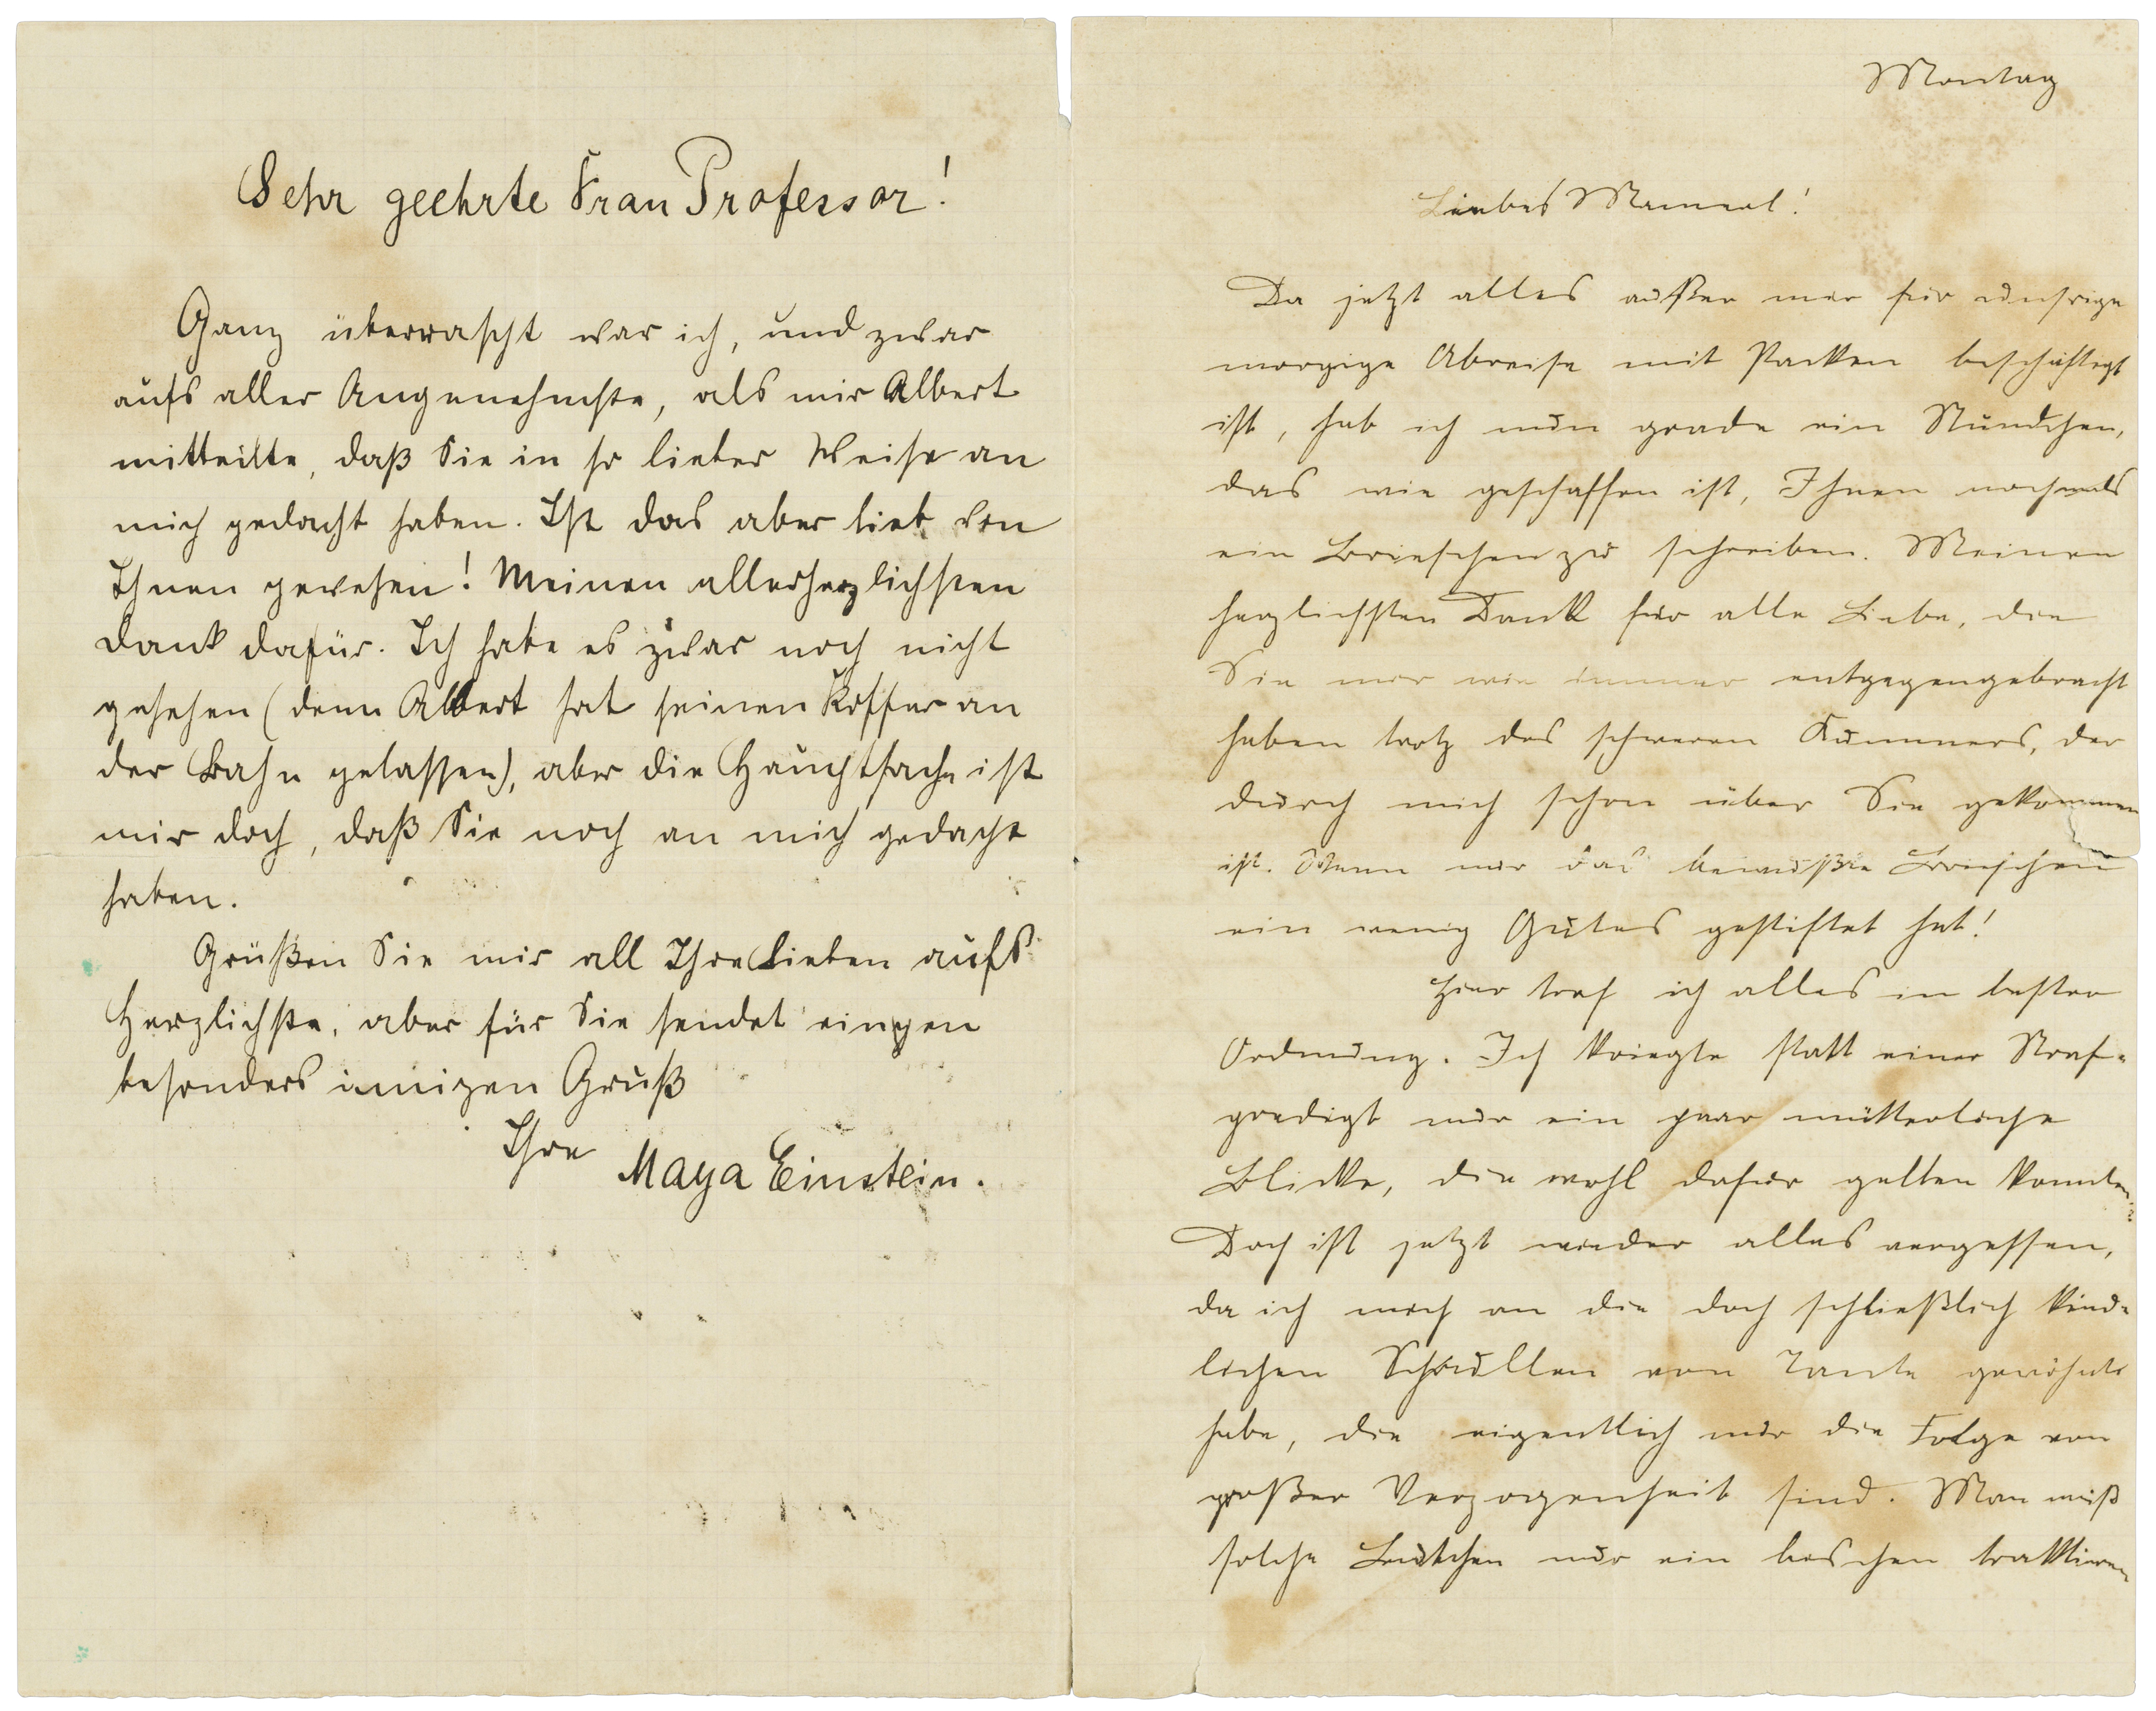 Sehr geehrte Frau Professor!
Ganz überrascht war ich, und zwar
aufs aller Angenehmste, als mir Albert
mitteilte, daß Sie in so lieber Weise an
mich gedacht haben. Ist das aber lieb von
Ihnen gewesen! Meinen allerherzlichsten
Dank dafür. Ich habe es zwar noch nicht
gesehen (denn Albert hat seinen Koffer an
der Bahn gelassen), aber die Hauptsache ist
mir doch, daß Sie noch an mich gedacht
haben.
Grüßen Sie mir all Ihre Lieben aufs
Herzlichste, aber für Sie sendet eingen
besonders innigen Gruß
Ihre Maya Einstein.
Montag
Liebes Mamerl!
Da jetzt alles außer mir für unsrige
morgige Abreise mit Packen beschäftigt
ist, hab ich nun grade ein Stündchen,
das wie geschaffen ist, Ihnen nochmals
ein Briefchen zu schreiben. Meinen
herzlichsten Dank für alle Liebe, die
Sie mir wie immer entgegengebracht
haben trotz des schweren Kummers, der
durch mich schon über Sie gekommen
ist. Wenn nur das bewußte Briefchen
ein wenig Gutes gestiftet hat!
Hier traf ich alles in bester
Ordnung. Ich kriegte statt einer Straf-
predigt nur ein paar mütterliche
Blicke, die wohl dafür gelten konnten.
Doch ist jetzt wieder alles vergessen,
da ich mich an die doch schließlich kind-
lichen Schrullen von Tante gewöhnt
habe, die eigentlich nur die Folge von
großer Verzogenheit sind. Man muß
solche Leutchen nur ein bischen traktieren